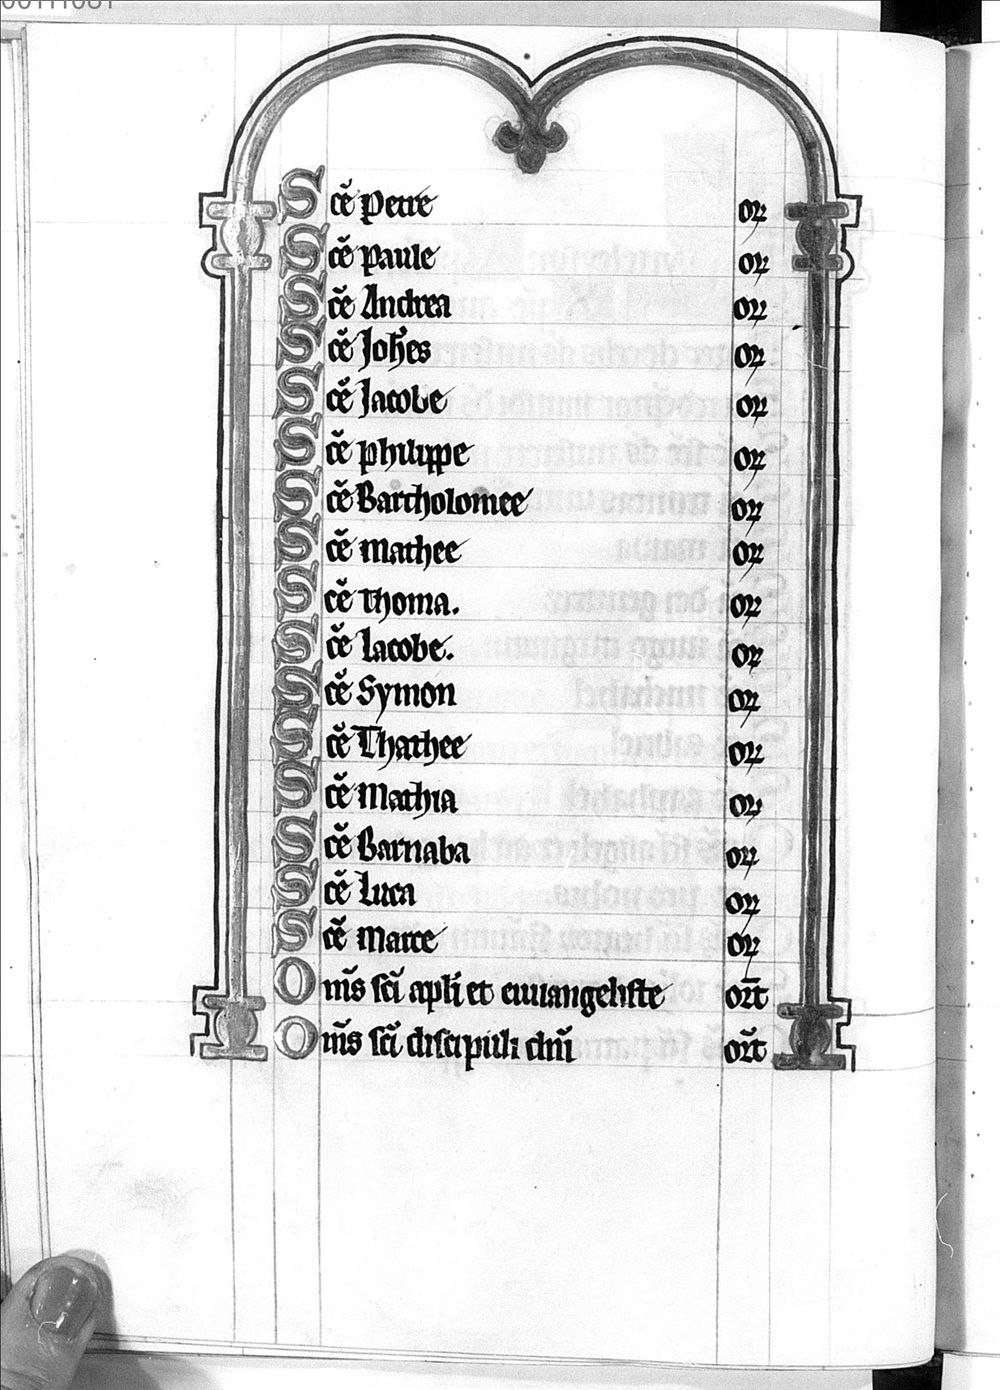 Sce᷃ Petre or
Sce᷃ Paule or
Sce᷃ Andrea or
Sce᷃ Joh̃es or
Sce᷃ Jacobe or
Sce᷃ philippe or
Sce᷃ Bartholomee or
Sce᷃ mathee or
Sce᷃ Thoma. or
Sce᷃ Iacobe. or
Sce᷃ Symon or
Sce᷃ Thathee or
Sce᷃ Mathia or
Sce᷃ Barnaba or
Sce᷃ Luca or
Sce᷃ Marce or
Om̃s sc̃i apl̃i et euuangeliste or̃t
Om̃s sc̃i discipuli dñi or̃t